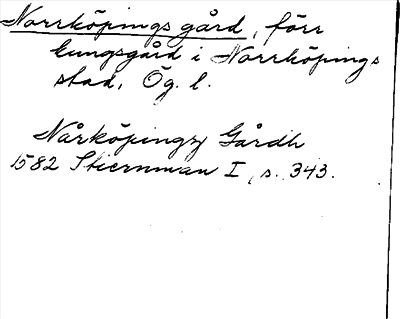 Norrköpings gård, förr
kungsgård i Norrköpings
stad, Ög. l.
Nårköpingz Gårdh
1582 Stiernman I, s. 343.